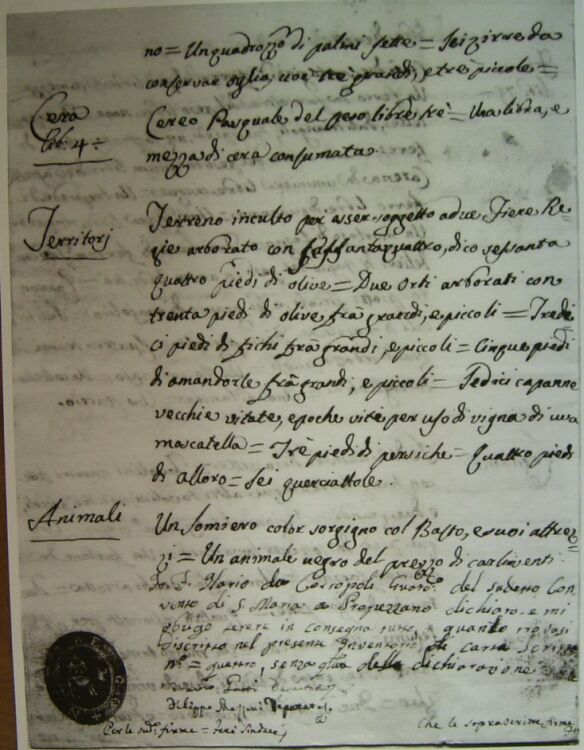 no = Un quadrozzo di palmi sette = Sei zirre da
conservar oglio, cioè trè grandi, e trè piccole =
Cera
Lib: 4 ÷
Cereo Pasquale del peso libre trè = Una libra, e
mezza di cera consumata.
Territorj
Terreno inculto per esser soggetto a due Fiere Re=
gie arborato con sessantaquattro, dico sessanta
quattro piedi di olive = Due Orti arborati con
trenta piedi di olive frà grandi, e piccoli = Tredi
ci piedi di fichi frà grandi, e piccoli = Cinque piedi
di amandorle frà grandi, e piccoli = Sedici capanne
vecchie vitate, e poche vite per uso di vigna di uva
moscatella = Trè piedi di persiche = Quattro piedi
di alloro = Sei querciattole.
Animali
Un somiero color sorgigno col Basto, e suoi attrez
zi = Un animale negro del prezzo di carlini venti
Io F. Ilario da Corropoli Guard.º del sudetto Con
vento di S. Maria a Propezzano dichiaro e mi
obligo tenere in consegna tutto, e quanto
discritto nel presente Inventario di carte scritte
n.º = quattro, senza della dichiarazione
Filippo
Per le sud.e firme =
Che le soprademe firme